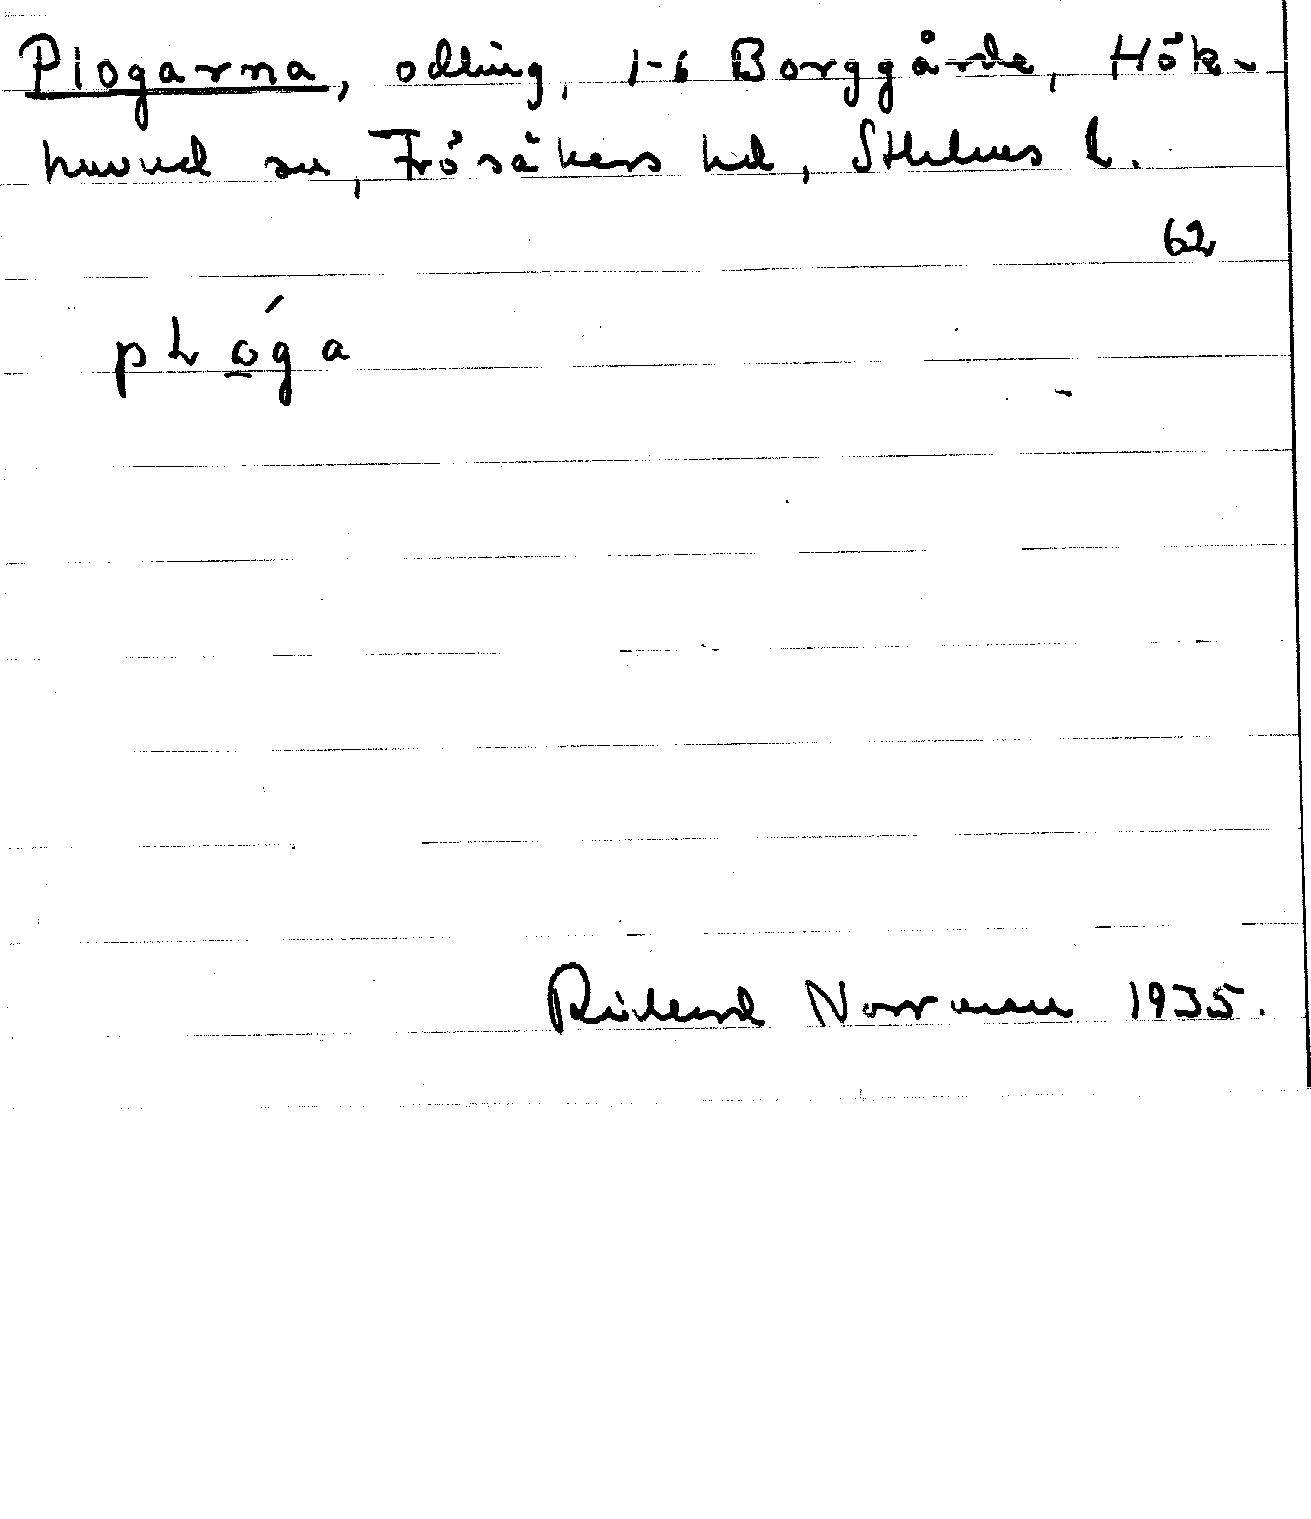 Plogarna, odling, 1-6 Borggårde, Hök-
huvud sn, Frösåkers hd, Sthlms l.
62
pLó̲ga
Rikard Norrman 1935.